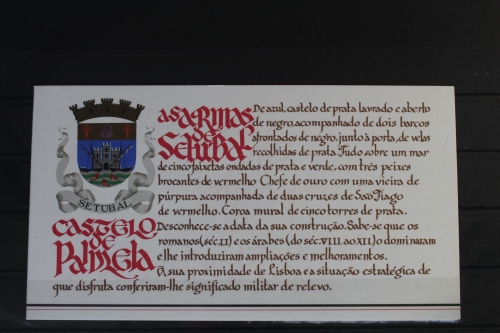 AS ARMAS
de
Setubal
De azul, castelo de prata lavrado e aberto
de negro, acompanhado de dois barcos
afrontados de negro, junto à porta, de velas
recolhidas de prata. Tudo sobre um mar
de cinco faixetas ondadas de prata e verde, com três peixes
brocantes de vermelho. Chefe de ouro com uma vieira de
púrpura acompanhada de duas cruzes de São Tiago
de vermelho. Coroa mural de cinco torres de prata.
SETUBAL
CASTELO
de
Palmela
Desconhece-se a data da sua construção. Sabe-se que os
romanos (séc. II) e os árabes (do séc. VIII ao XII) o dominaram
e lhe introduziram ampliações e melhoramentos.
A sua proximidade de Lisboa e a situação estratégica de
que disfruta conferiram-lhe significado militar de relevo.